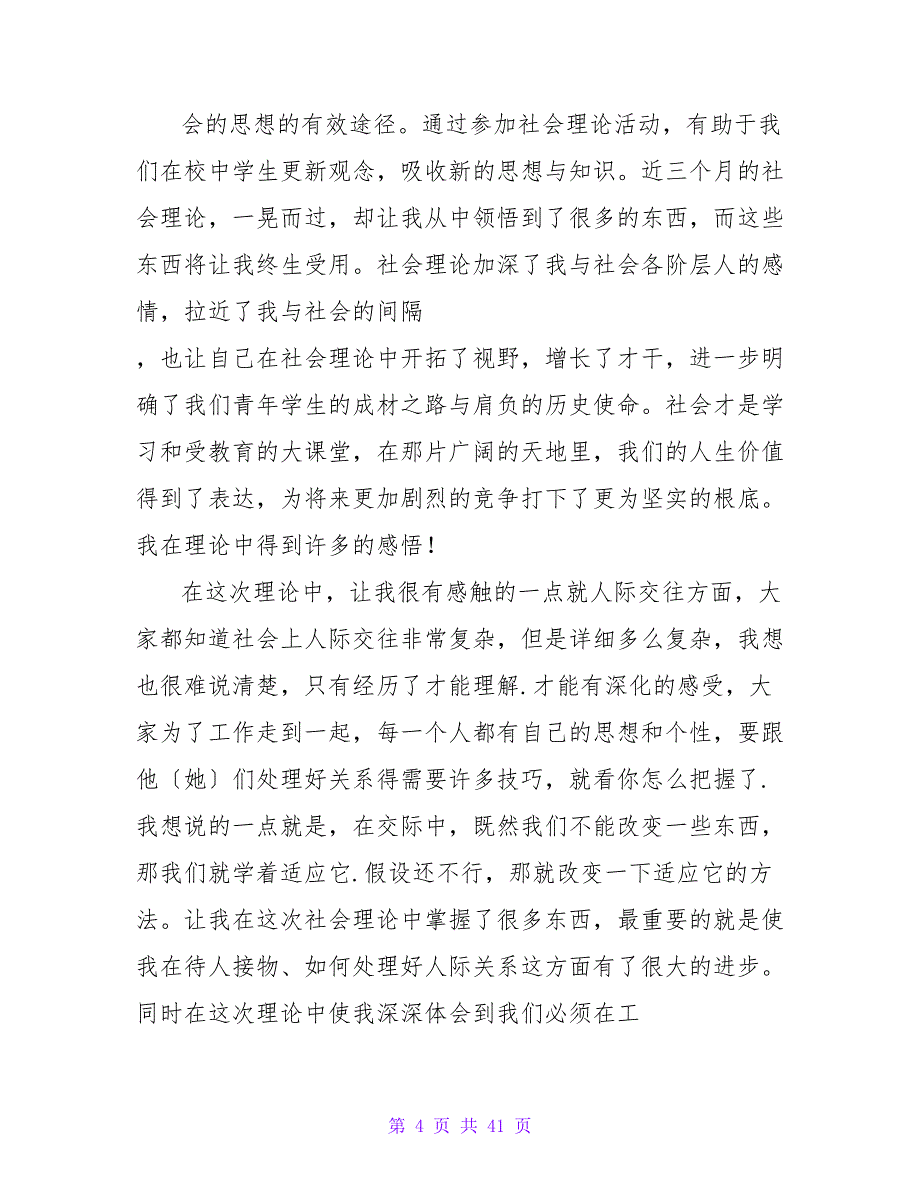 会的思想的有效途径。通过参加社会理论活动，有助于我
们在校中学生更新观念，吸收新的思想与知识。近三个月的社
会理论，一晃而过，却让我从中领悟到了很多的东西，而这些
东西将让我终生受用。社会理论加深了我与社会各阶层人的感
情，拉近了我与社会的间隔
，也让自己在社会理论中开拓了视野，增长了才干，进一步明
确了我们青年学生的成材之路与肩负的历史使命。社会才是学
习和受教育的大课堂，在那片广阔的天地里，我们的人生价值
得到了表达，为将来更加剧烈的竞争打下了更为坚实的根底。
我在理论中得到许多的感悟！
在这次理论中，让我很有感触的一点就人际交往方面，大
家都知道社会上人际交往非常复杂，但是详细多么复杂，我想
也很难说清楚，只有经历了才能理解.才能有深化的感受，大
家为了工作走到一起，每一个人都有自己的思想和个性，要跟
他〔她〕们处理好关系得需要许多技巧，就看你怎么把握了.
我想说的一点就是，在交际中，既然我们不能改变一些东西，
那我们就学着适应它.假设还不行，那就改变一下适应它的方
法。让我在这次社会理论中掌握了很多东西，最重要的就是使
我在待人接物、如何处理好人际关系这方面有了很大的进步。
同时在这次理论中使我深深体会到我们必须在工
第 4 页 共 41 页